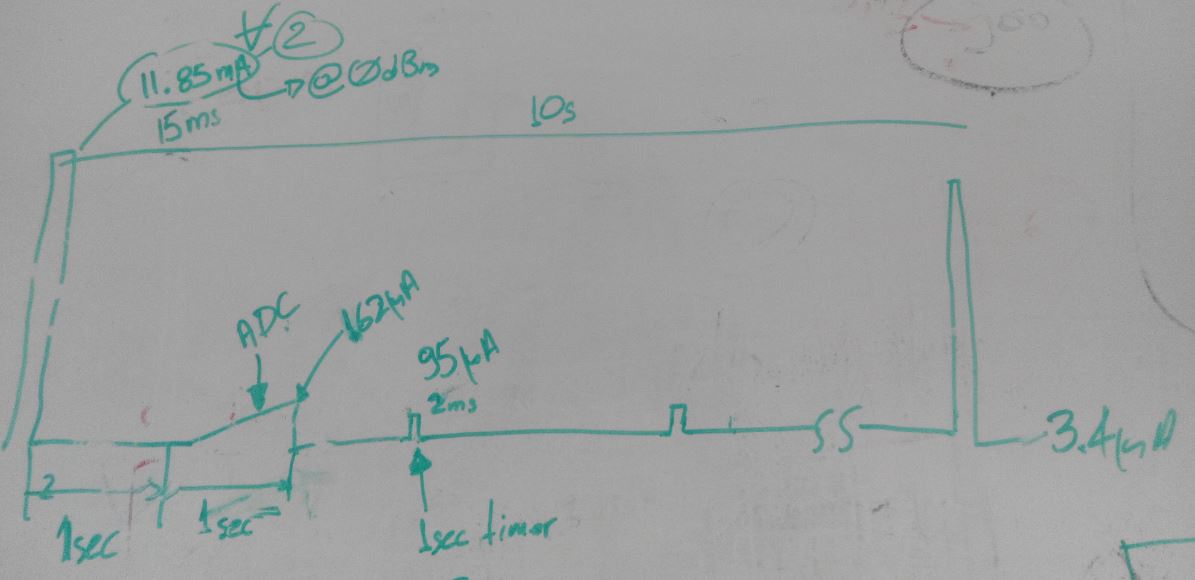 2
11.85mA
@0dBm
15ms
10s
ADC
162μA
95μA
2ms
3.4μA
1sec
1sec
1sec timor